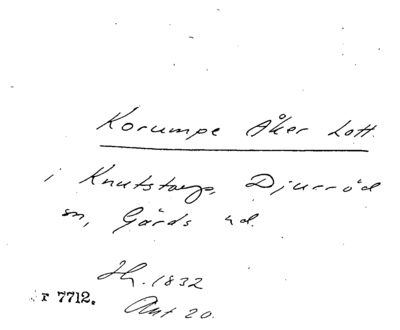 Korumpe Åker Lott
i Knutstorp, Djurröd
sn, Gärds hd.
Ht. 1832
r 7712.
Akt 20.